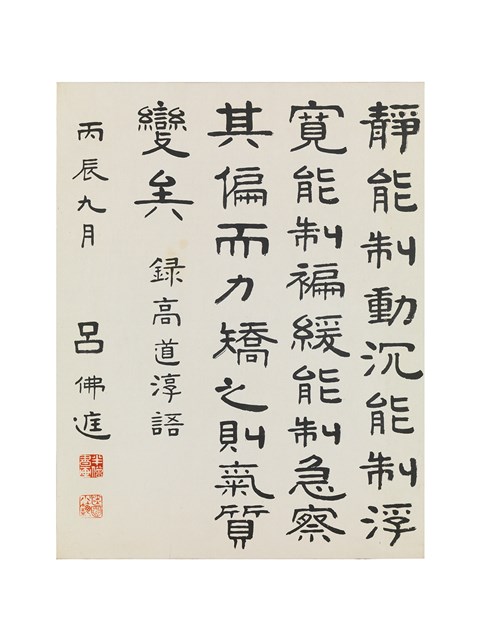 靜能制動沉能制浮
寬能制褊緩能制急察
其偏而力矯之則氣質
變矣
錄高道淳語
丙辰九月
呂佛庭